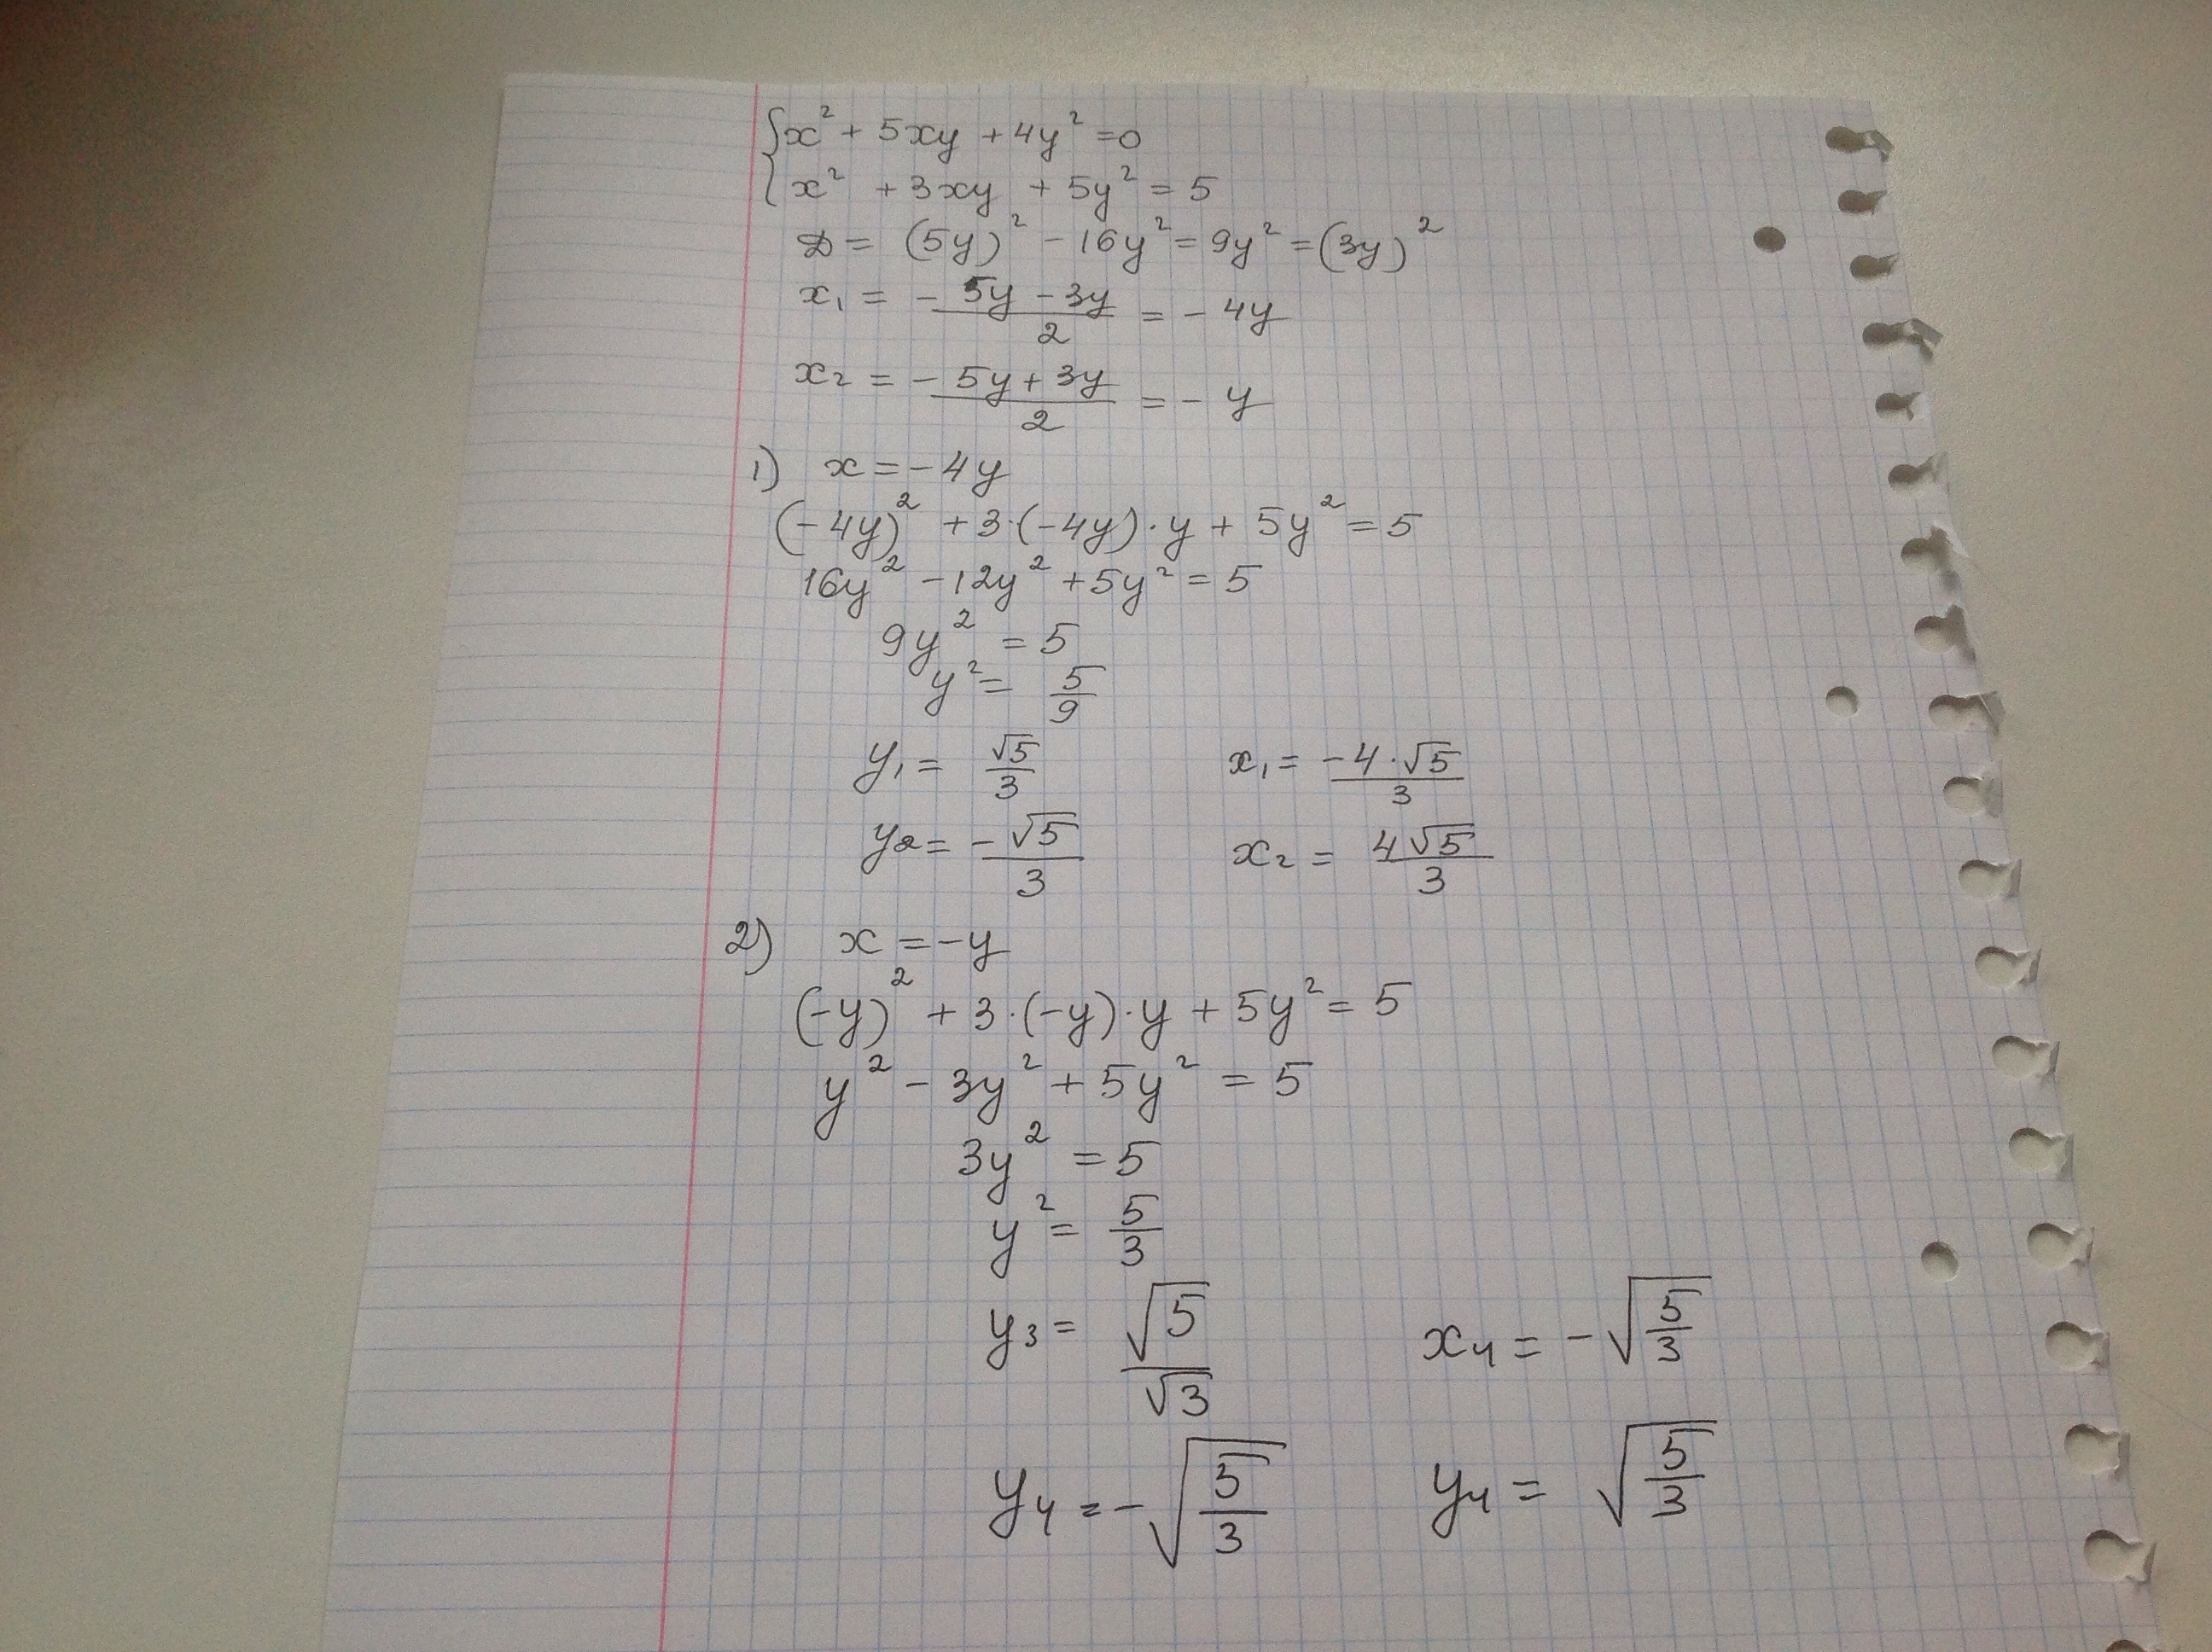 {x² + 5xy + 4y² = 0
{x² + 3xy + 5y² = 5
D = (5y)² - 16y² = 9y² = (3y)²
x₁ = (-5y - 3y)/2 = -4y
x₂ = (-5y + 3y)/2 = -y
1) x = -4y
(-4y)² + 3·(-4y)·y + 5y² = 5
16y² - 12y² + 5y² = 5
9y² = 5
y² = 5/9
y₁ = √5/3 x₁ = -4·√5/3
y₂ = -√5/3 x₂ = 4√5/3
2) x = -y
(-y)² + 3·(-y)·y + 5y² = 5
y² - 3y² + 5y² = 5
3y² = 5
y² = 5/3
y₃ = √5/√3 x₄ = -√(5/3)
y₄ = -√(5/3) y₄ = √(5/3)